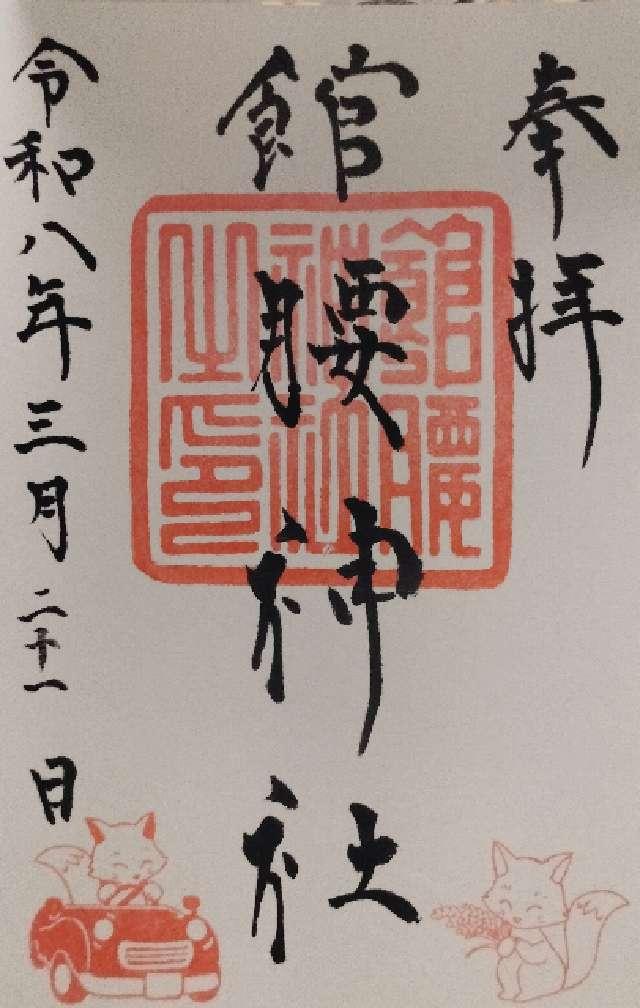 奉拝
館腰神社
館腰神社之印
令和八年三月二十一日